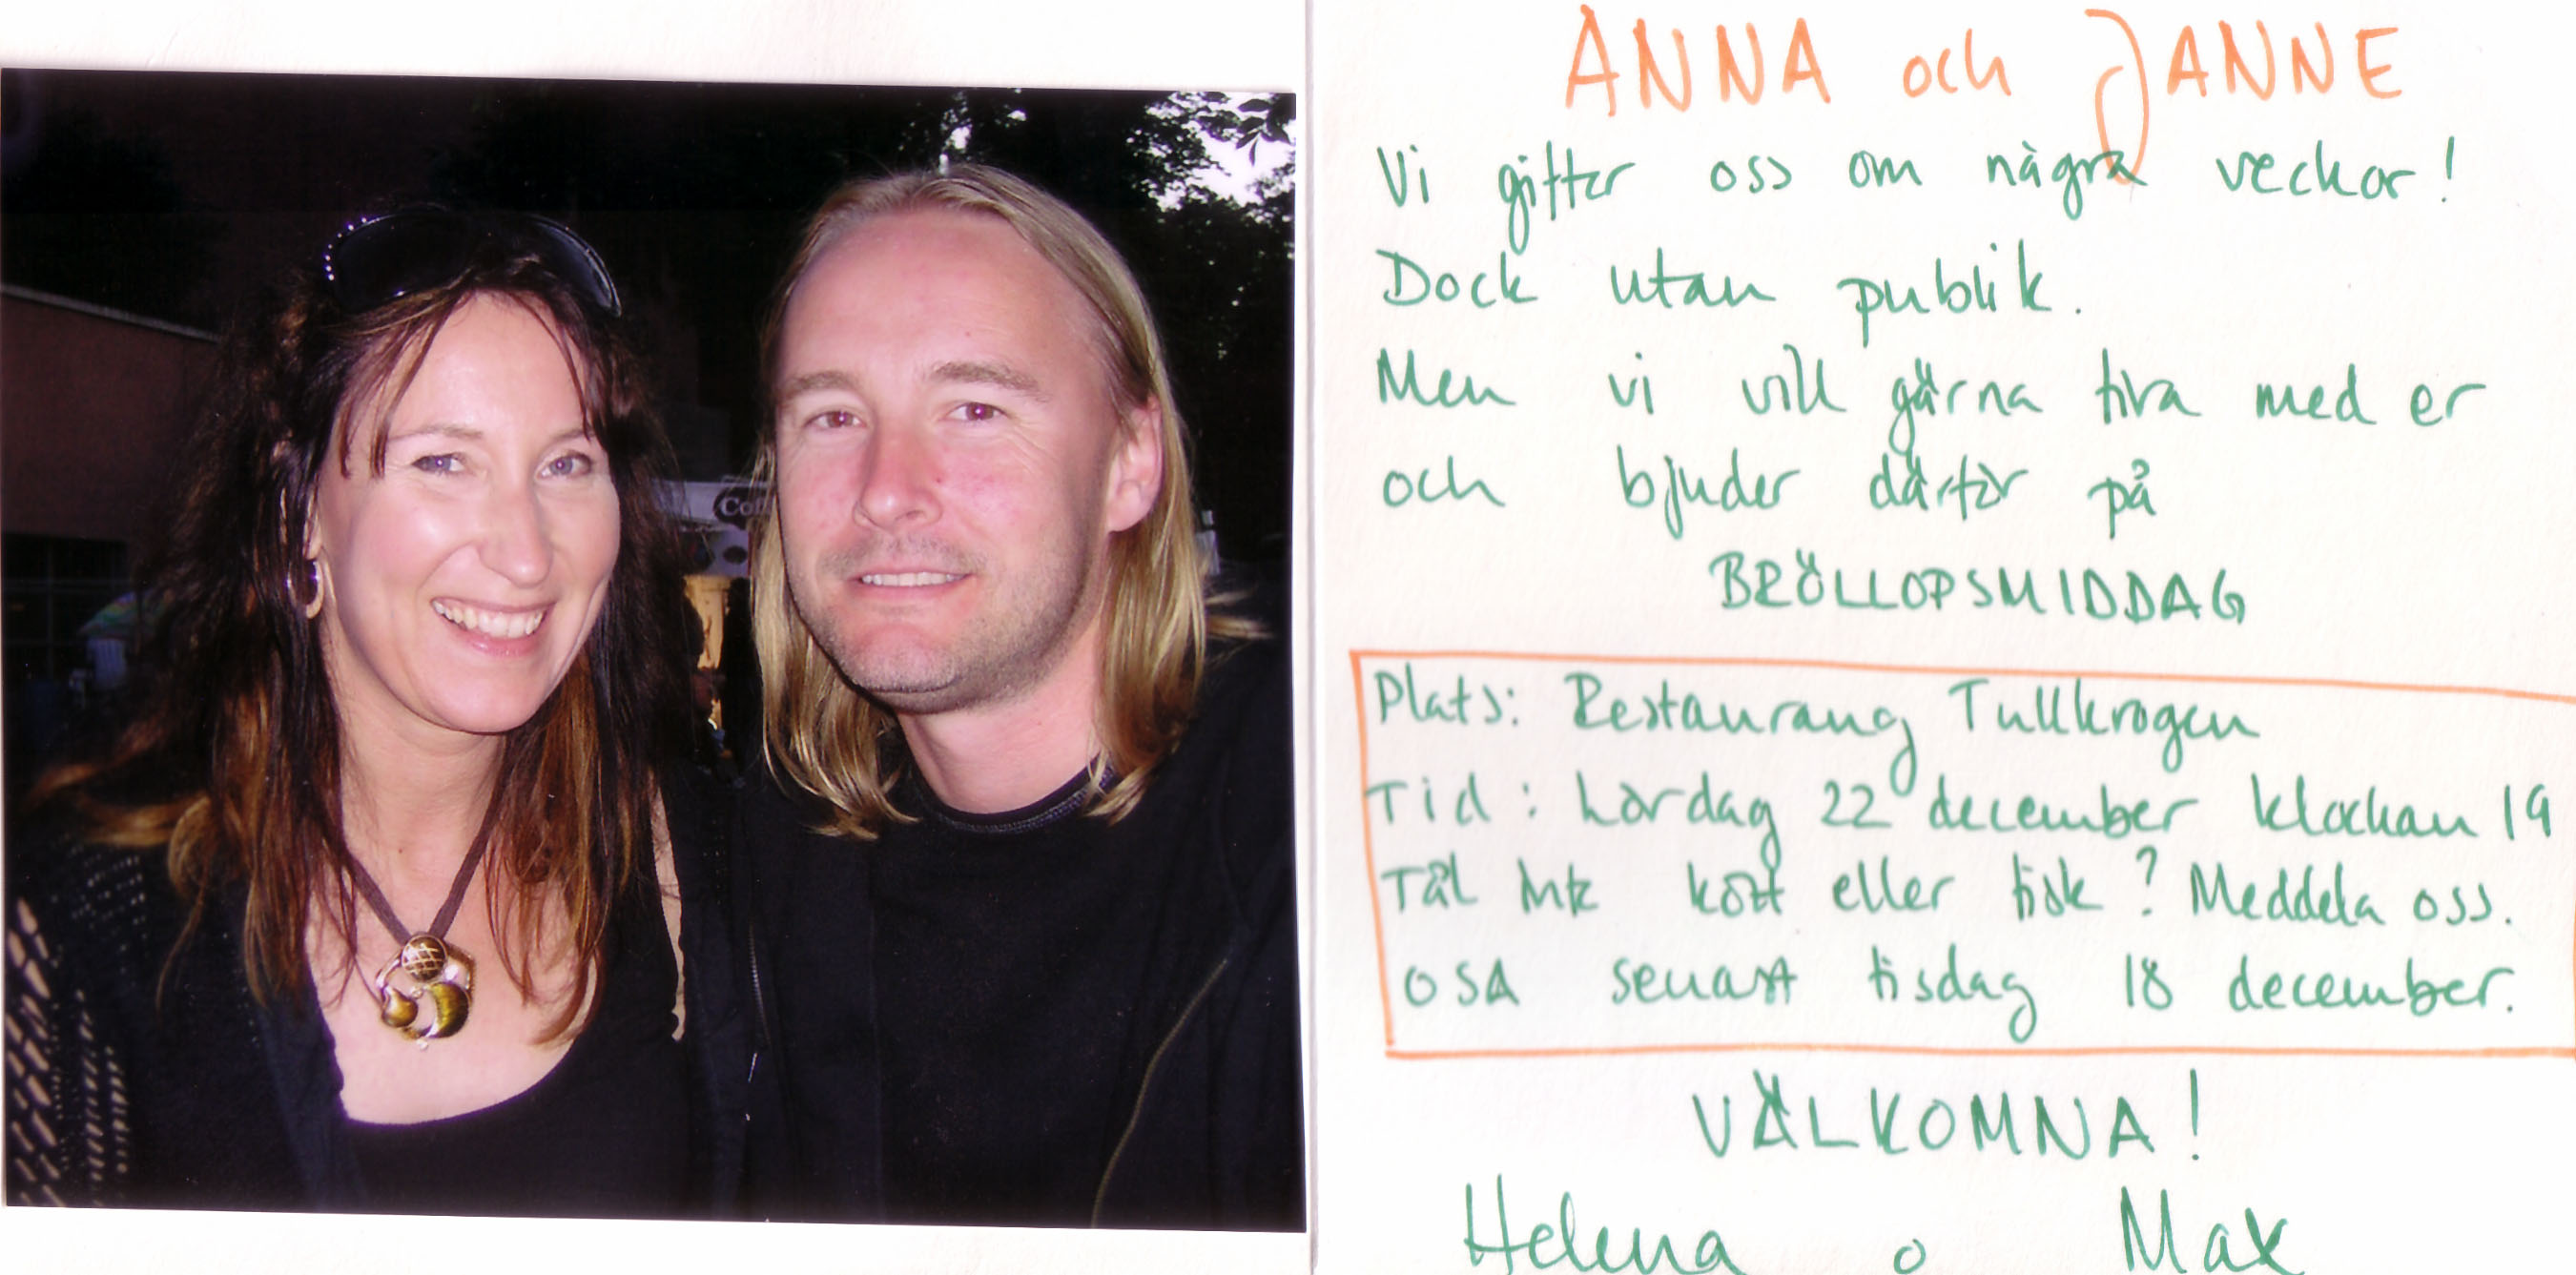 Co
ANNA och JANNE
Vi gifter oss om några veckor!
Dock utan publik.
Men vi vill gärna fira med er
och bjuder därför på
BRÖLLOPSMIDDAG
Plats: Restaurang Tullkrogen
Tid: Lördag 22 december klockan 19
Tål inte kött eller fisk? Meddela oss.
OSA senast tisdag 18 december.
VÄLKOMNA!
Helena o Max